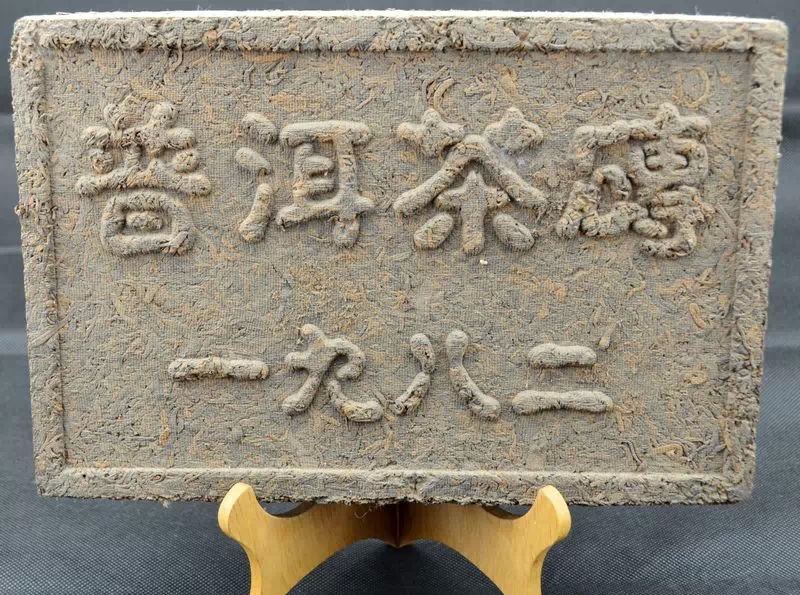 普洱茶磚
一九八二